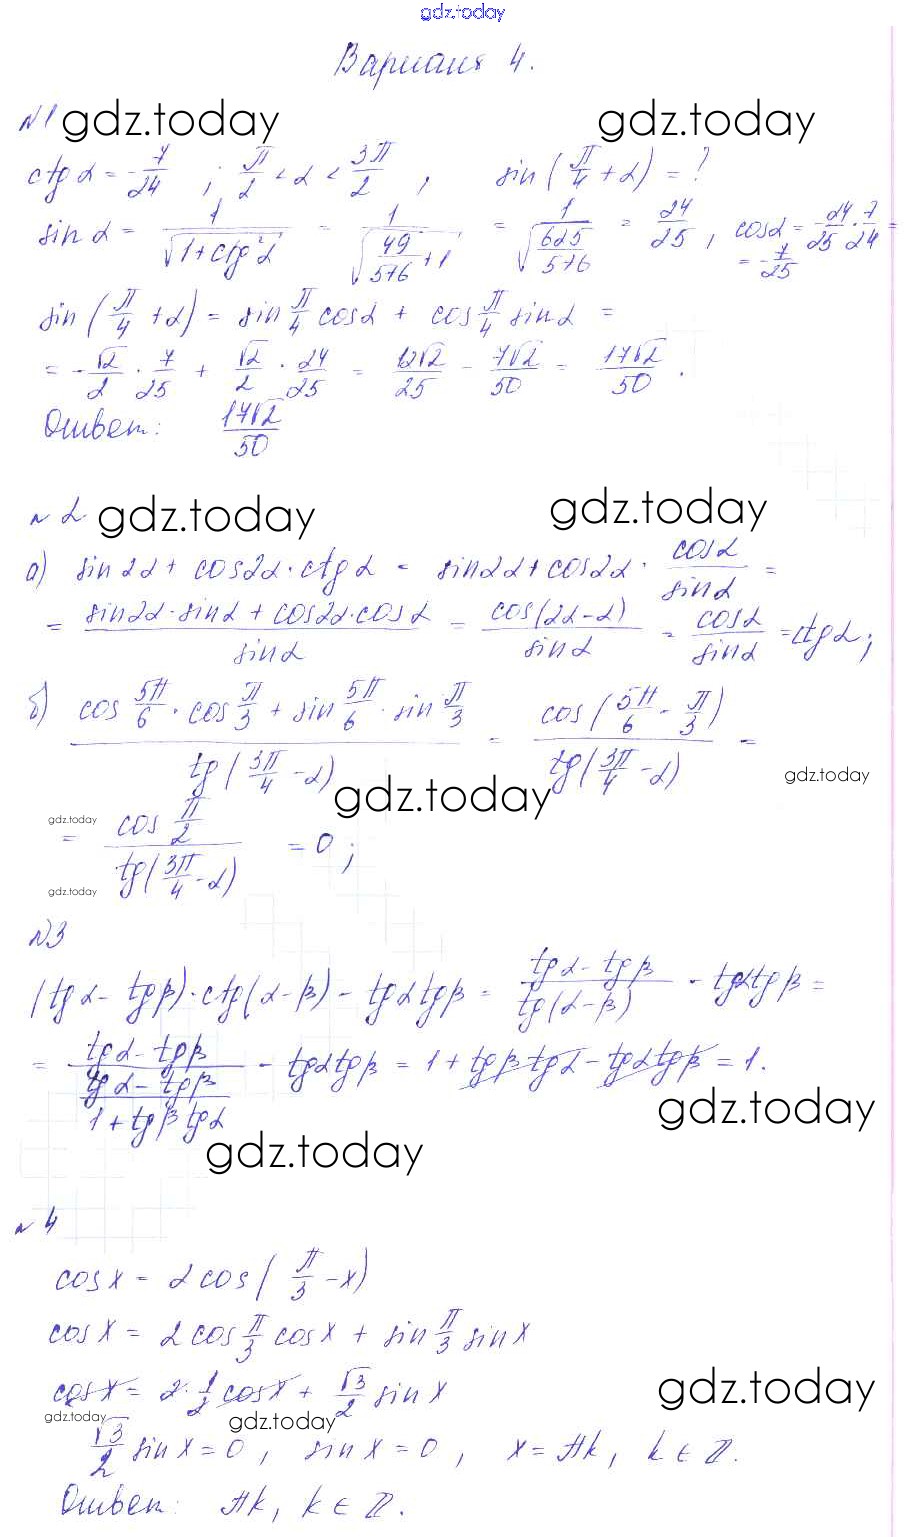 gdz.today
Вариант 4.
№1 gdz.today gdz.today
ctg α = -7/24 ; π/2 < α < 3π/2 , sin (π/4 + α) = ?
sin α = 1/√(1+ctg²α) = 1/√(49/576 + 1) = 1/√(625/576) = 24/25 , cos α = -24/25 · 7/24 =
= -7/25
sin (π/4 + α) = sin π/4 cos α + cos π/4 sin α =
= -√2/2 · 7/25 + √2/2 · 24/25 = 12√2/25 - 7√2/50 = 17√2/50 .
Ответ: 17√2/50
№2 gdz.today gdz.today
а) sin 2α + cos 2α · ctg α = sin 2α + cos 2α · cos α/sin α =
= (sin 2α · sin α + cos 2α · cos α)/sin α = cos(2α - α)/sin α = cos α/sin α = ctg α ;
б) (cos 5π/6 · cos π/3 + sin 5π/6 · sin π/3)/tg(3π/4 - α) = cos(5π/6 - π/3)/tg(3π/4 - α) =
gdz.today gdz.today
gdz.today
= cos π/2 / tg(3π/4 - α) = 0 ;
gdz.today
№3
(tg α - tg β) · ctg(α - β) - tg α tg β = (tg α - tg β)/tg(α - β) - tg α tg β =
= (tg α - tg β)/((tg α - tg β)/(1 + tg β tg α)) - tg α tg β = 1 + tg β tg α - tg α tg β = 1.
gdz.today
gdz.today
№4
cos x = 2 cos (π/3 - x)
cos x = 2 cos π/3 cos x + sin π/3 sin x
cos x = 2 · 1/2 cos x + √3/2 sin x
gdz.today
gdz.today gdz.today
√3/2 sin x = 0 , sin x = 0 , x = πk , k ∈ Z.
Ответ: πk , k ∈ Z.
gdz.today